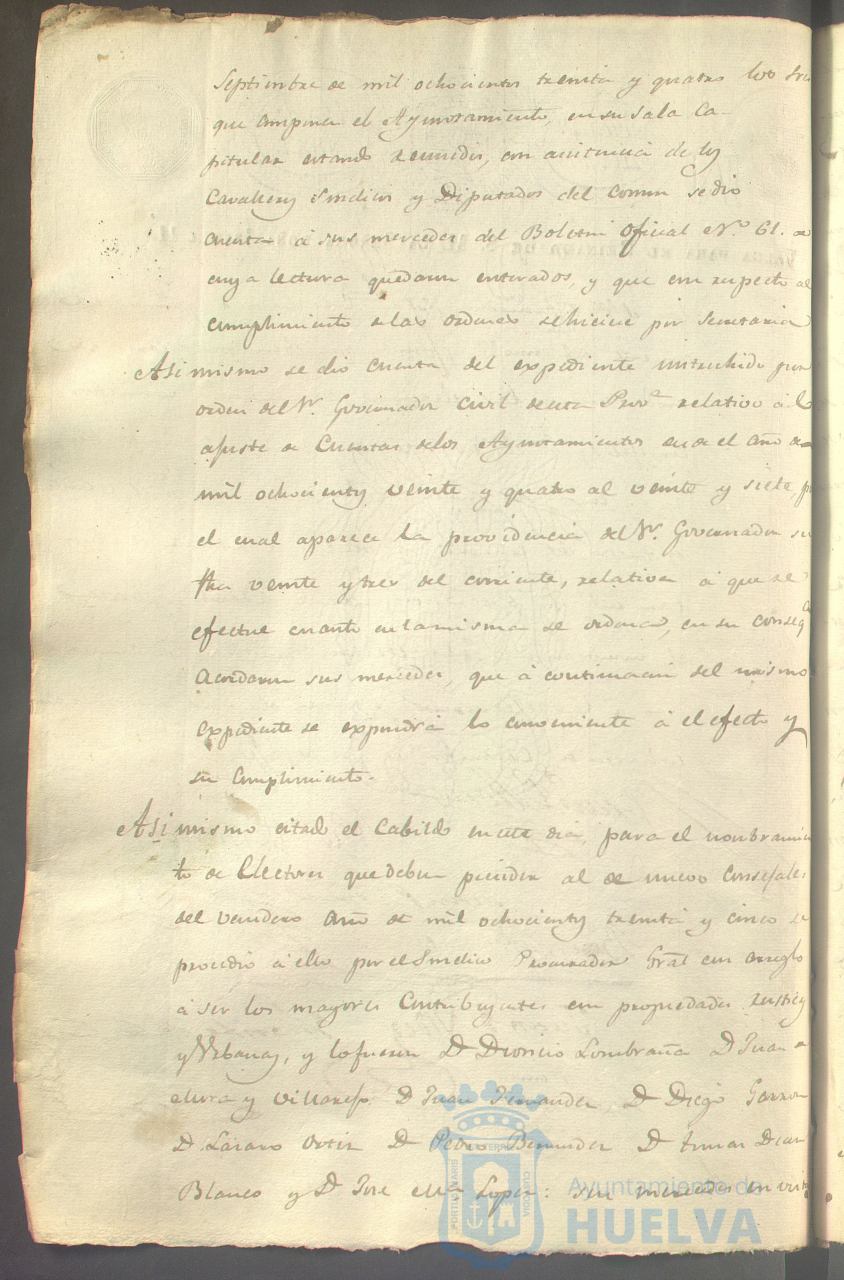 Septiembre de mil ochocientos treinta y quatro los Sres
que componen el Ayuntamiento, en su sala Ca-
pitular estando reunidos, con asistencia de los
Cavalleros Sindicos y Diputados del Comun se dio
cuenta à sus mercedes del Boletin Oficial Nº 61. de
cuya lectura quedaron enterados, y que con respecto al
cumplimiento de las ordenes se hiciese por Secretaria
Asi mismo se dio cuenta del expediente instruhido por
orden del Sr. Governador Civil de esta Provª relativo à el
ajuste de Cuentas de los Ayuntamientos desde el año de
mil ochocientos veinte y quatro al veinte y siete, por
el cual aparece la providencia del Sr. Governador su
fha veinte y tres del corriente, relativa à que se
efectue cuanto en la misma se ordena, en su conseqª
Acordaron sus mercedes, que à continuacion del mismo
Expediente se expondrà lo conveniente à el efecto y
su cumplimiento.
Asi mismo citado el Cabildo en este dia, para el nombramien
to de Electores que deben preceder al de nuevo Consejales
del venidero año de mil ochocientos treinta y cinco se
procedio à ello por el Sindico Procurador Gral con arreglo
à ser los mayores Contribuyentes en propiedades rusticas
y Urbanas, y lo fueron D Dionicio Lombraña D Juan
y Villanejo D Juan Fernandez, D Diego Garzon
D Lázaro Ortiz D Pedro Bermudez D Tomas Diaz
Blanco y D Jose Mª Lopez: Sus mercedes en vista
PORTUS MARIS ET TERRAE CUSTODIA
Ayuntamiento de
HUELVA